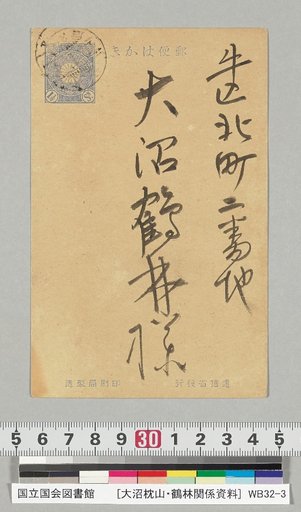 郵便はかき
牛込北町二番地
大沼鶴林様
逓信省発行
印刷局製造
5 6 7 8 9 30 1 2 3 4 5
国立国会図書館 [大沼枕山・鶴林関係資料] WB32-3